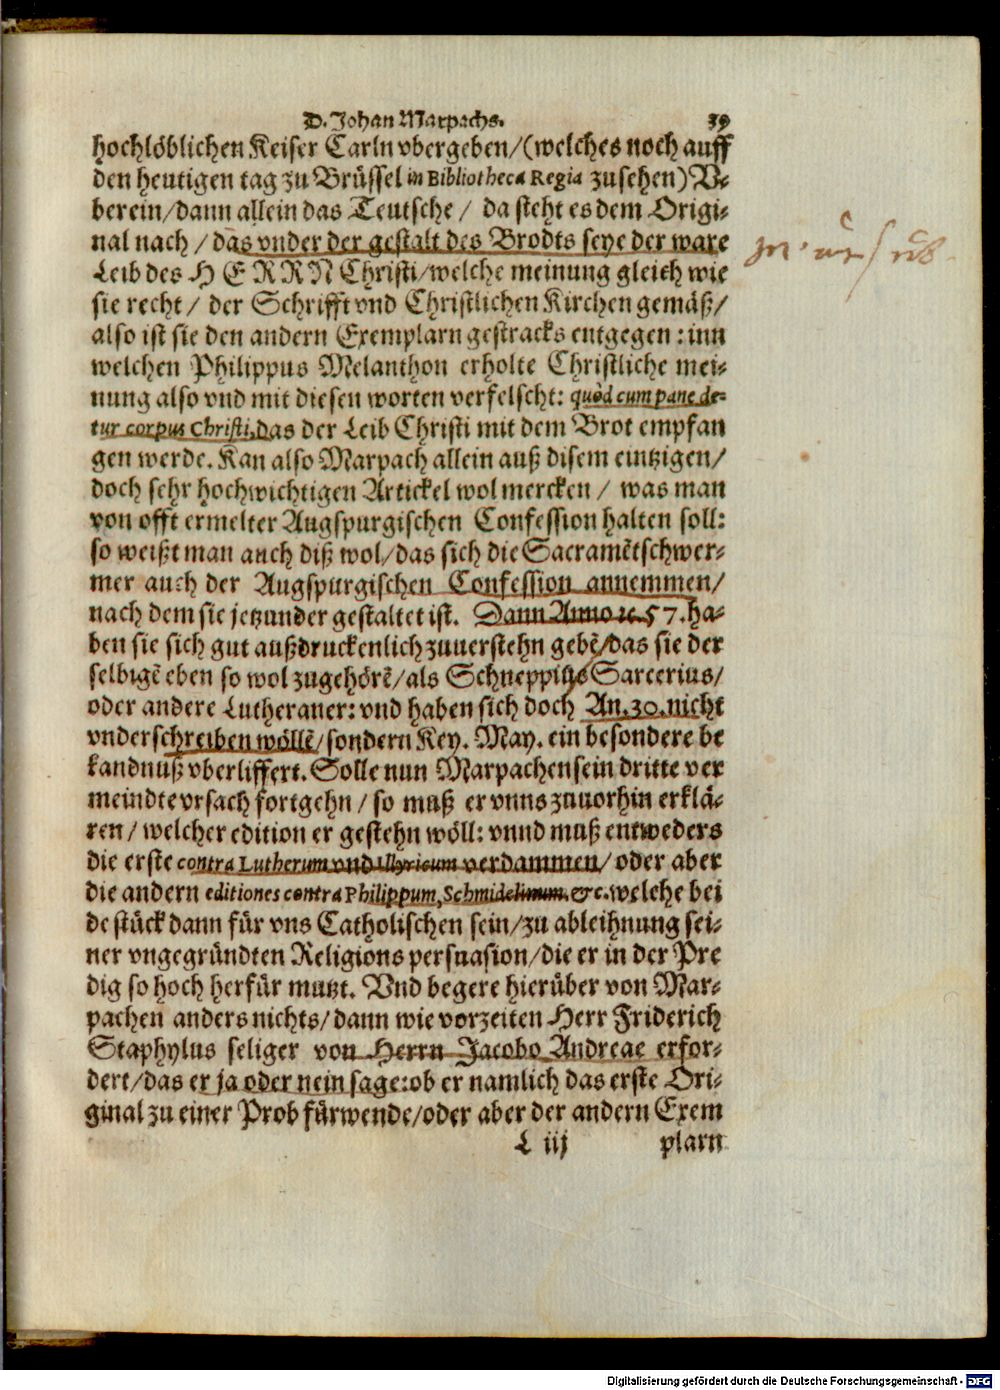 D. Johan Marpachs. 39
hochlöblichen Keiser Carln vbergeben/(welches noch auff
den heutigen tag zu Brüssel in Bibliotheca Regia zusehen) V-
berein/dann allein das Teutsche / da steht es dem Origi-
nal nach / das vnder der gestalt des Brodts seye der ware
Leib des HERRN Christi/welche meinung gleich wie
sie recht / der Schrifft vnd Christlichen Kirchen gemäß/
also ist sie den andern Exemplarn gestracks entgegen: inn
welchen Philippus Melanthon erholte Christliche mei-
nung also vnd mit diesen worten verfelscht: quòd cum pane de-
tur corpus Christi, das der Leib Christi mit dem Brot empfan
gen werde. Kan also Marpach allein auß disem eintzigen/
doch sehr hochwichtigen Artickel wol mercken / was man
von offt ermelter Augspurgischen Confession halten soll:
so weißt man auch diß wol/das sich die Sacramẽtschwer-
mer auch der Augspurgischen Confession annemmen/
nach dem sie jetzunder gestaltet ist. Dann Anno 1557. ha-
ben sie sich gut außdruckenlich zuuerstehn gebẽ/das sie der
selbigẽ eben so wol zugehörẽ/als Schneppius/Sarcerius/
oder andere Lutheraner: vnd haben sich doch An.30.nicht
vnderschreiben wöllẽ/sondern Key. May. ein besondere be
kandnuß vberliffert. Solle nun Marpachen sein dritte ver
meindte vrsach fortgehn / so muß er vnns zuuorhin erklä-
ren / welcher edition er gestehn wöll: vnnd muß entweders
die erste contra Lutherum vnd Illyricum verdammen/ oder aber
die andern editiones contra Philippum, Schmidelinum. &c. welche bei
de stück dann für vns Catholischen sein/zu ableihnung sei-
ner vngegründten Religions persuasion/die er in der Pre
dig so hoch herfür mutzt. Vnd begere hierüber von Mar-
pachen anders nichts/dann wie vorzeiten Herr Friderich
Staphylus seliger von Herrn Jacobo Andreae erfor-
dert/das er ja oder nein sage:ob er namlich das erste Ori-
ginal zu einer Prob fürwende/oder aber der andern Exem
L iij plarn
Digitalisierung gefördert durch die Deutsche Forschungsgemeinschaft - DFG